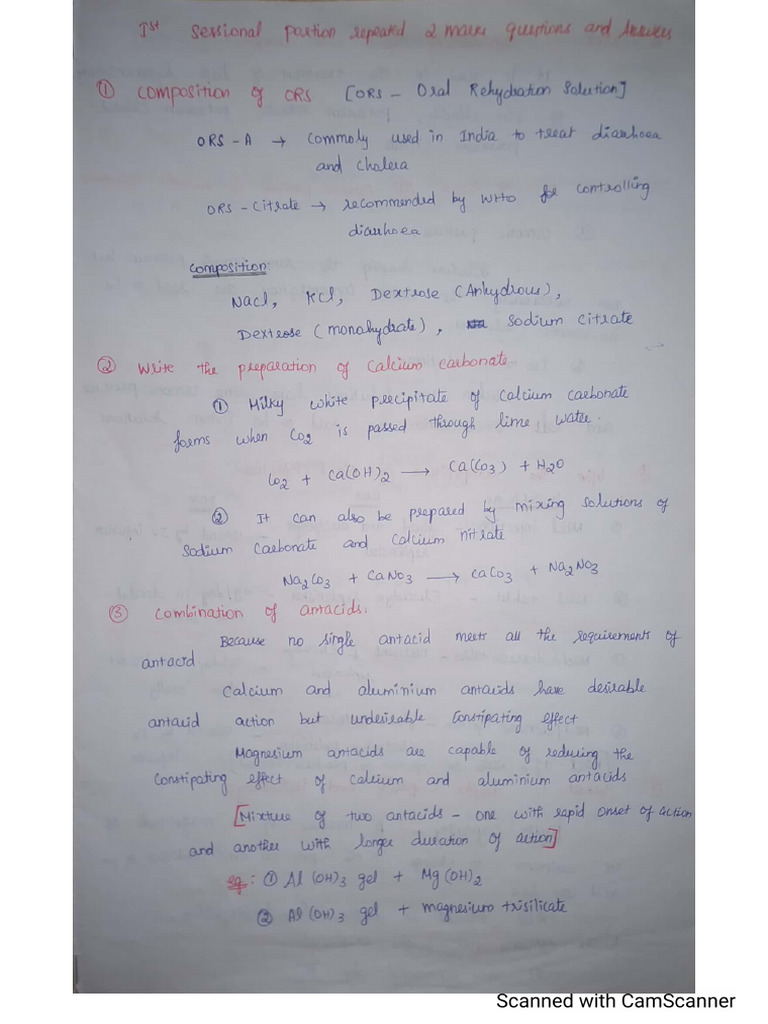 Ist Sessional portion repeated 2 marks questions and Answers
① Composition of ORS [ORS - Oral Rehydration Solution]
ORS - A → Commoly used in India to treat diarrhoea
and cholera
ORS - Citrate → recommended by WHO for controlling
diarrhoea
Composition:
Nacl, KCl, Dextrose (Anhydrous),
Dextrose (monohydrate), Sodium Citrate
② Write the preparation of Calcium carbonate
① Milky white precipitate of Calcium Carbonate
forms when Co2 is passed through lime water.
Co2 + Ca(OH)2 → Ca(Co3) + H2O
② It can also be prepared by mixing solutions of
Sodium Carbonate and Calcium nitrate
Na2Co3 + CaNo3 → CaCo3 + Na2No3
③ Combination of antacids:
Because no single antacid meets all the requirements of
antacid
Calcium and aluminium antacids have desirable
antacid action but undesirable Constipating effect
Magnesium antacids are capable of reducing the
Constipating effect of calcium and aluminium antacids
[Mixture of two antacids - one with rapid onset of action
and another with longer duration of action]
eg: ① Al(OH)3 gel + Mg(OH)2
② Al(OH)3 gel + magnesium trisilicate
Scanned with CamScanner